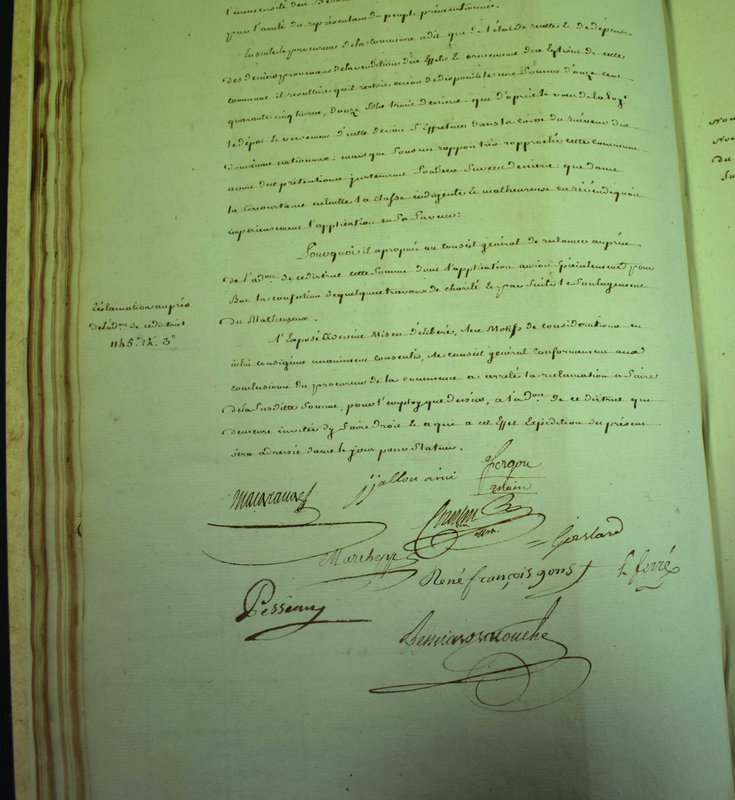 par l'arrêté du représentant du peuple présentionné.
Ensuite le procureur de la commune a dit que de l'état de recette & de dépense
des deniers provenans de la vendition des Effets & ornemens des Eglises de cette
commune il résulteroit qu'il restoit encore de disponible une somme d'onze cent
quarante cinq livres, douze sols trois deniers. que d'après le vœu de la loy
le dépôt & versement d'icelle devoit s'effectuer dans la caisse du receveur des
domaines nationaux. mais que sous un rapport très rapproché cette commune
avoit des prétentions justement fondées sur ces deniers; que dans
la circonstance actuelle la classe indigente & malheureuse en revendiquoit
impérieusement l'application en sa faveur:
Pourquoi il a proposé au conseil général de réclamer auprès
de l'adon de ce district cette somme dont l'application auroit spécialement pour
But la confection de quelques travaux de charité & par suite le soulagement
du Malheureux.
Réclamation auprès
de l'adon de ce district
1145tt 12s 3d
L'Exposé ci dessus Mis en délibéré, & les Motifs de considérations en
icelui consignés unanimement consentis, le conseil général conformément aux
conclusions du procureur de la commune a arrêté la réclamation à faire
de la susditte somme, pour l'employ que dessus, a l'adon de ce district qui
demeure invitée dy faire droit & a qui a cet Effet Expédition du présent
sera adressée dans le jour pour statuer.
jallon ainé
Fergon
maire
Marchegay
Girard
René françois gous
L ferré